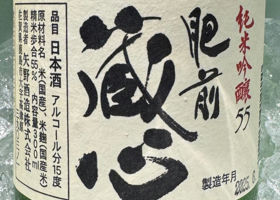 純米吟醸55
肥前
蔵心
品目 日本酒 アルコール分15度
原材料名/米(国産)、米麹(国産米)
精米歩合55% 内容量300ml
製造者 矢野酒造株式会社
佐賀県鹿島市大字高津原
製造年月 2025.